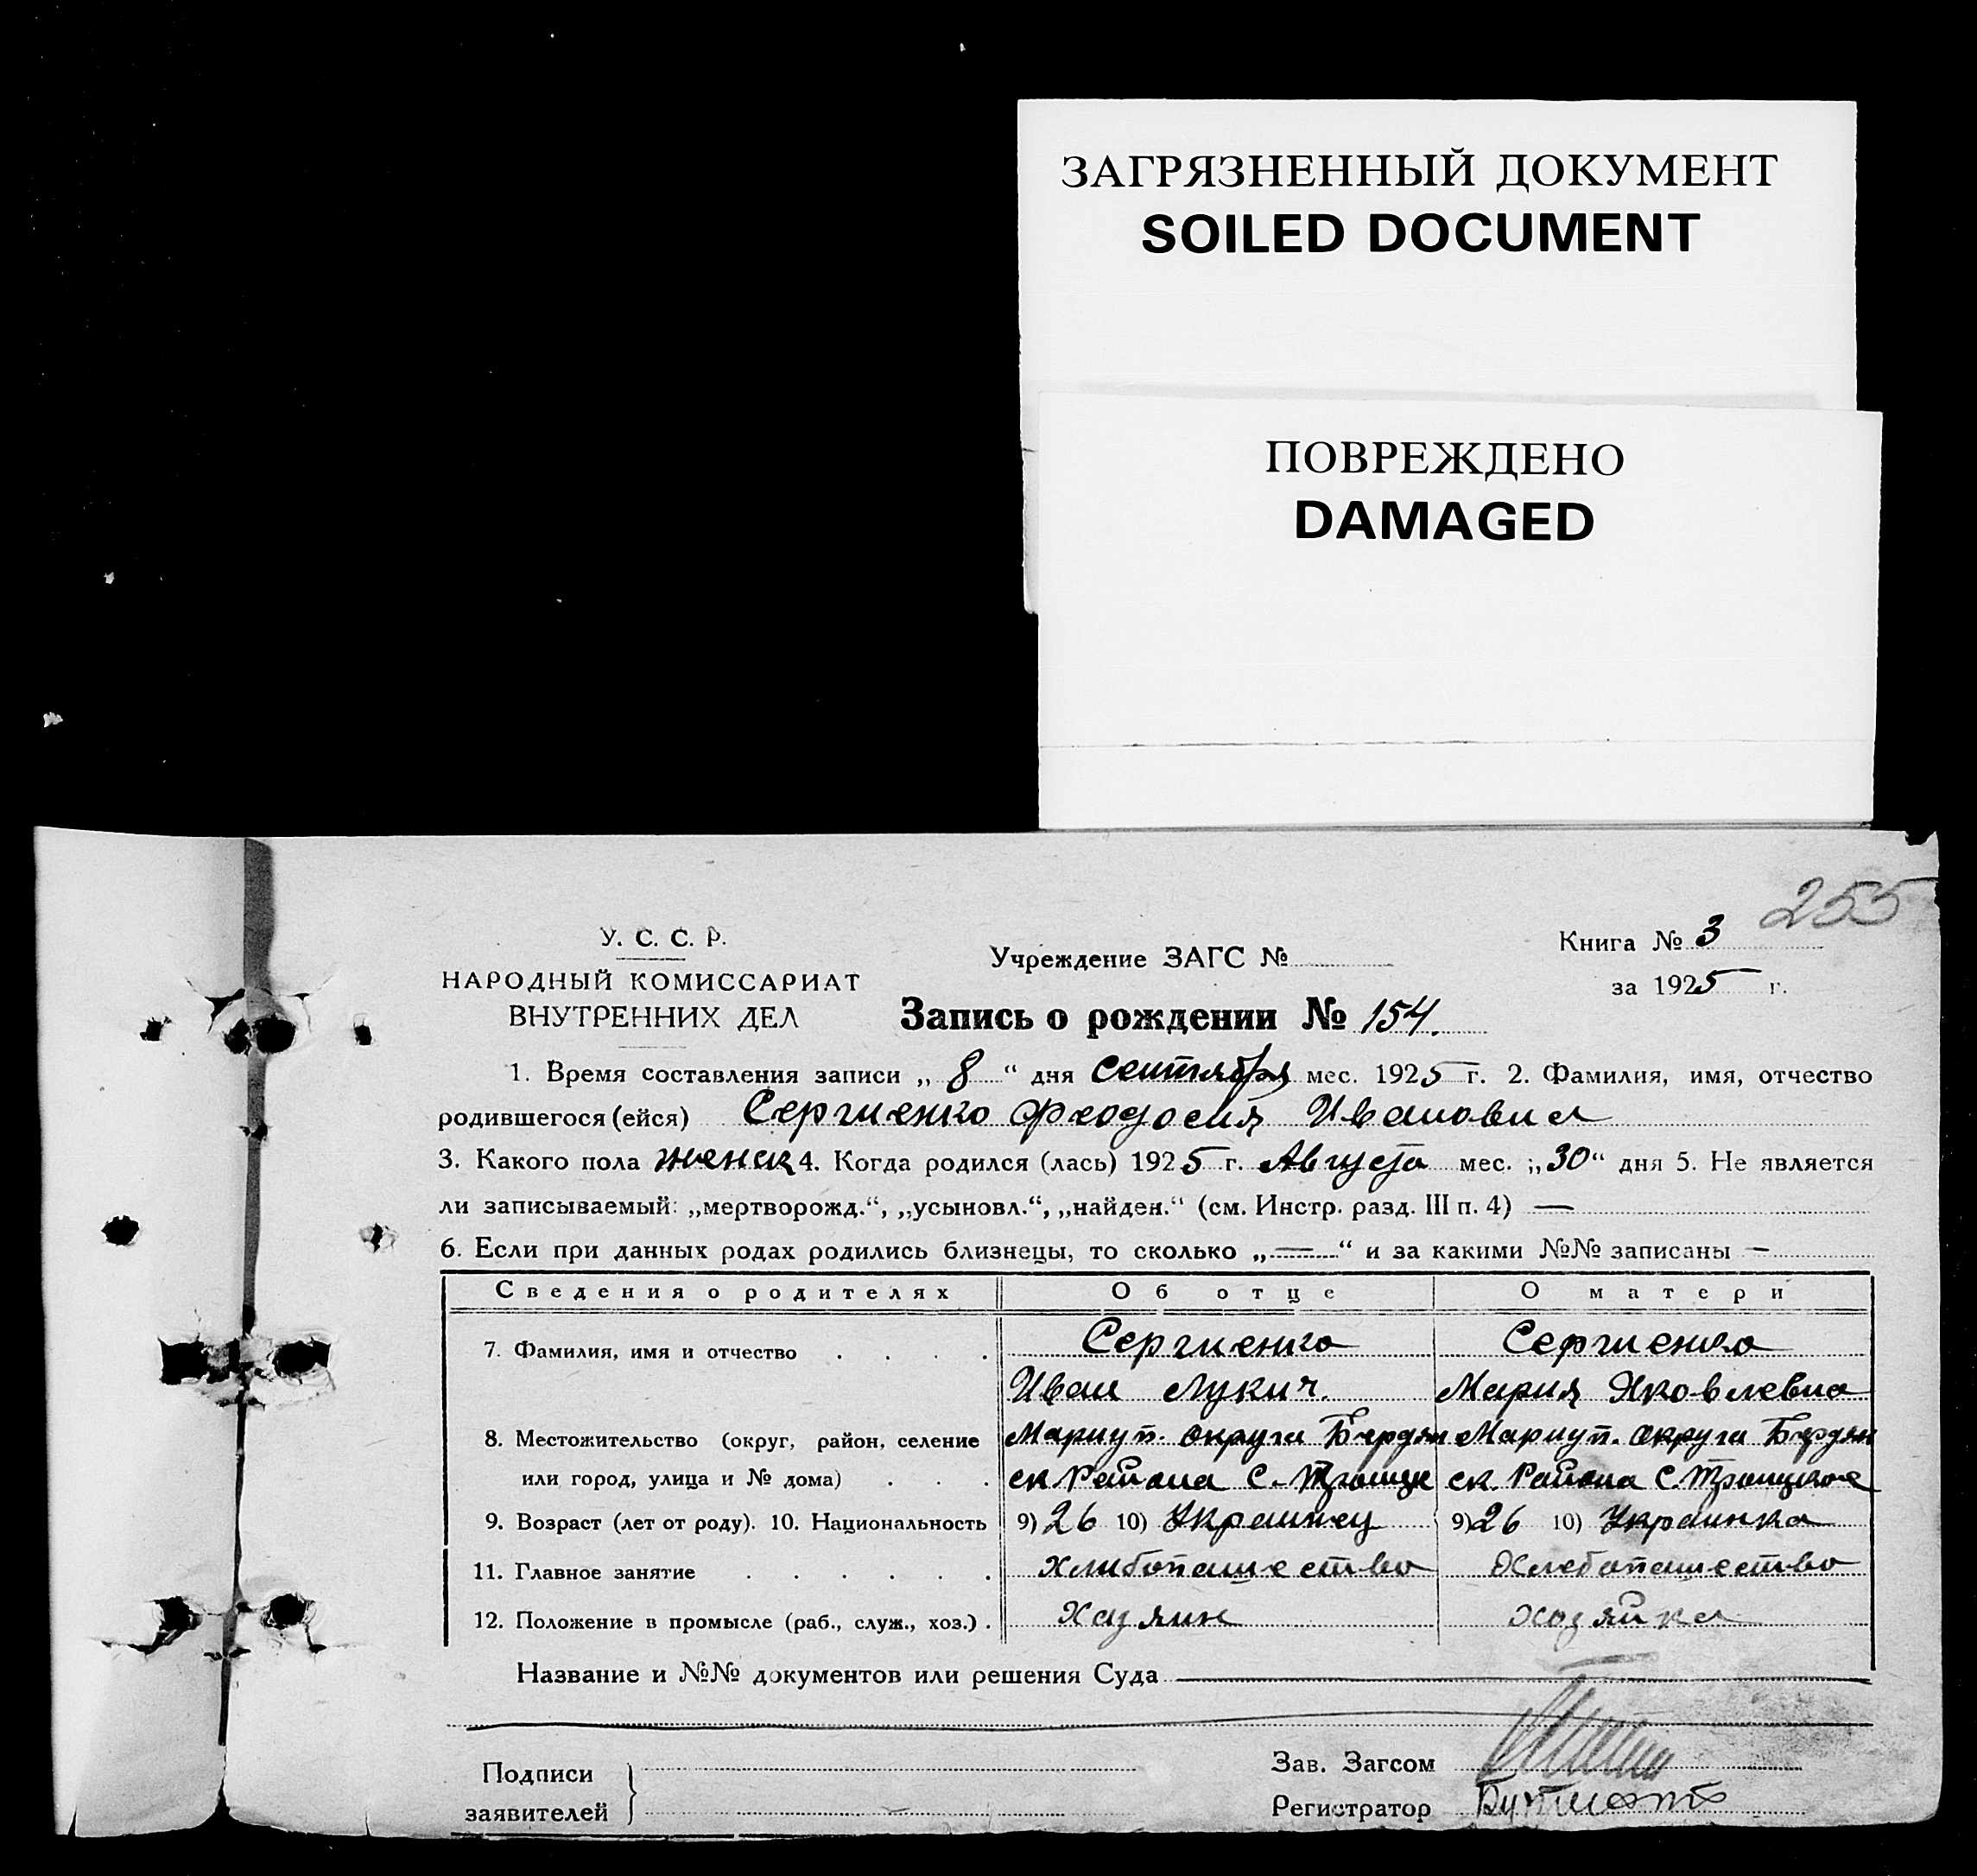 ЗАГРЯЗНЕННЫЙ ДОКУМЕНТ
SOILED DOCUMENT
ПОВРЕЖДЕНО
DAMAGED
255
У. С. С. Р.
НАРОДНЫЙ КОМИССАРИАТ
ВНУТРЕННИХ ДЕЛ
Учреждение ЗАГС №
Книга № 3
за 1925 г.
Запись о рождении № 154.
1. Время составления записи „ 8 “ дня Сентября мес. 1925 г. 2. Фамилия, имя, отчество
родившегося (ейся) Сергиенко Феодосия Ивановна
3. Какого пола женск 4. Когда родился (лась) 1925 г. Августа мес. „30“ дня 5. Не является
ли записываемый: „мертворожд.“, „усыновл.“, „найден.“ (см. Инстр. разд. III п. 4) —
6. Если при данных родах родились близнецы, то сколько „—“ и за какими №№ записаны —
Сведения о родителях Об отце О матери
7. Фамилия, имя и отчество . . . . Сергиенко Сергиенко
Иван Лукич. Мария Яковлевна
8. Местожительство (округ, район, селение Мариуп. округа Бердян Мариуп. округа Бердян
или город, улица и № дома) . . . ск Района С. Троицк ск. Района С. Троицкое
9. Возраст (лет от роду). 10. Национальность 9) 26 10) Украинец 9) 26 10) Украинка
11. Главное занятие . . . . . . Хлибопашество Хлебопашество
12. Положение в промысле (раб., служ., хоз.) . Хазяин хозяйка
Название и №№ документов или решения Суда
Подписи
заявителей
Зав. Загсом
Регистратор